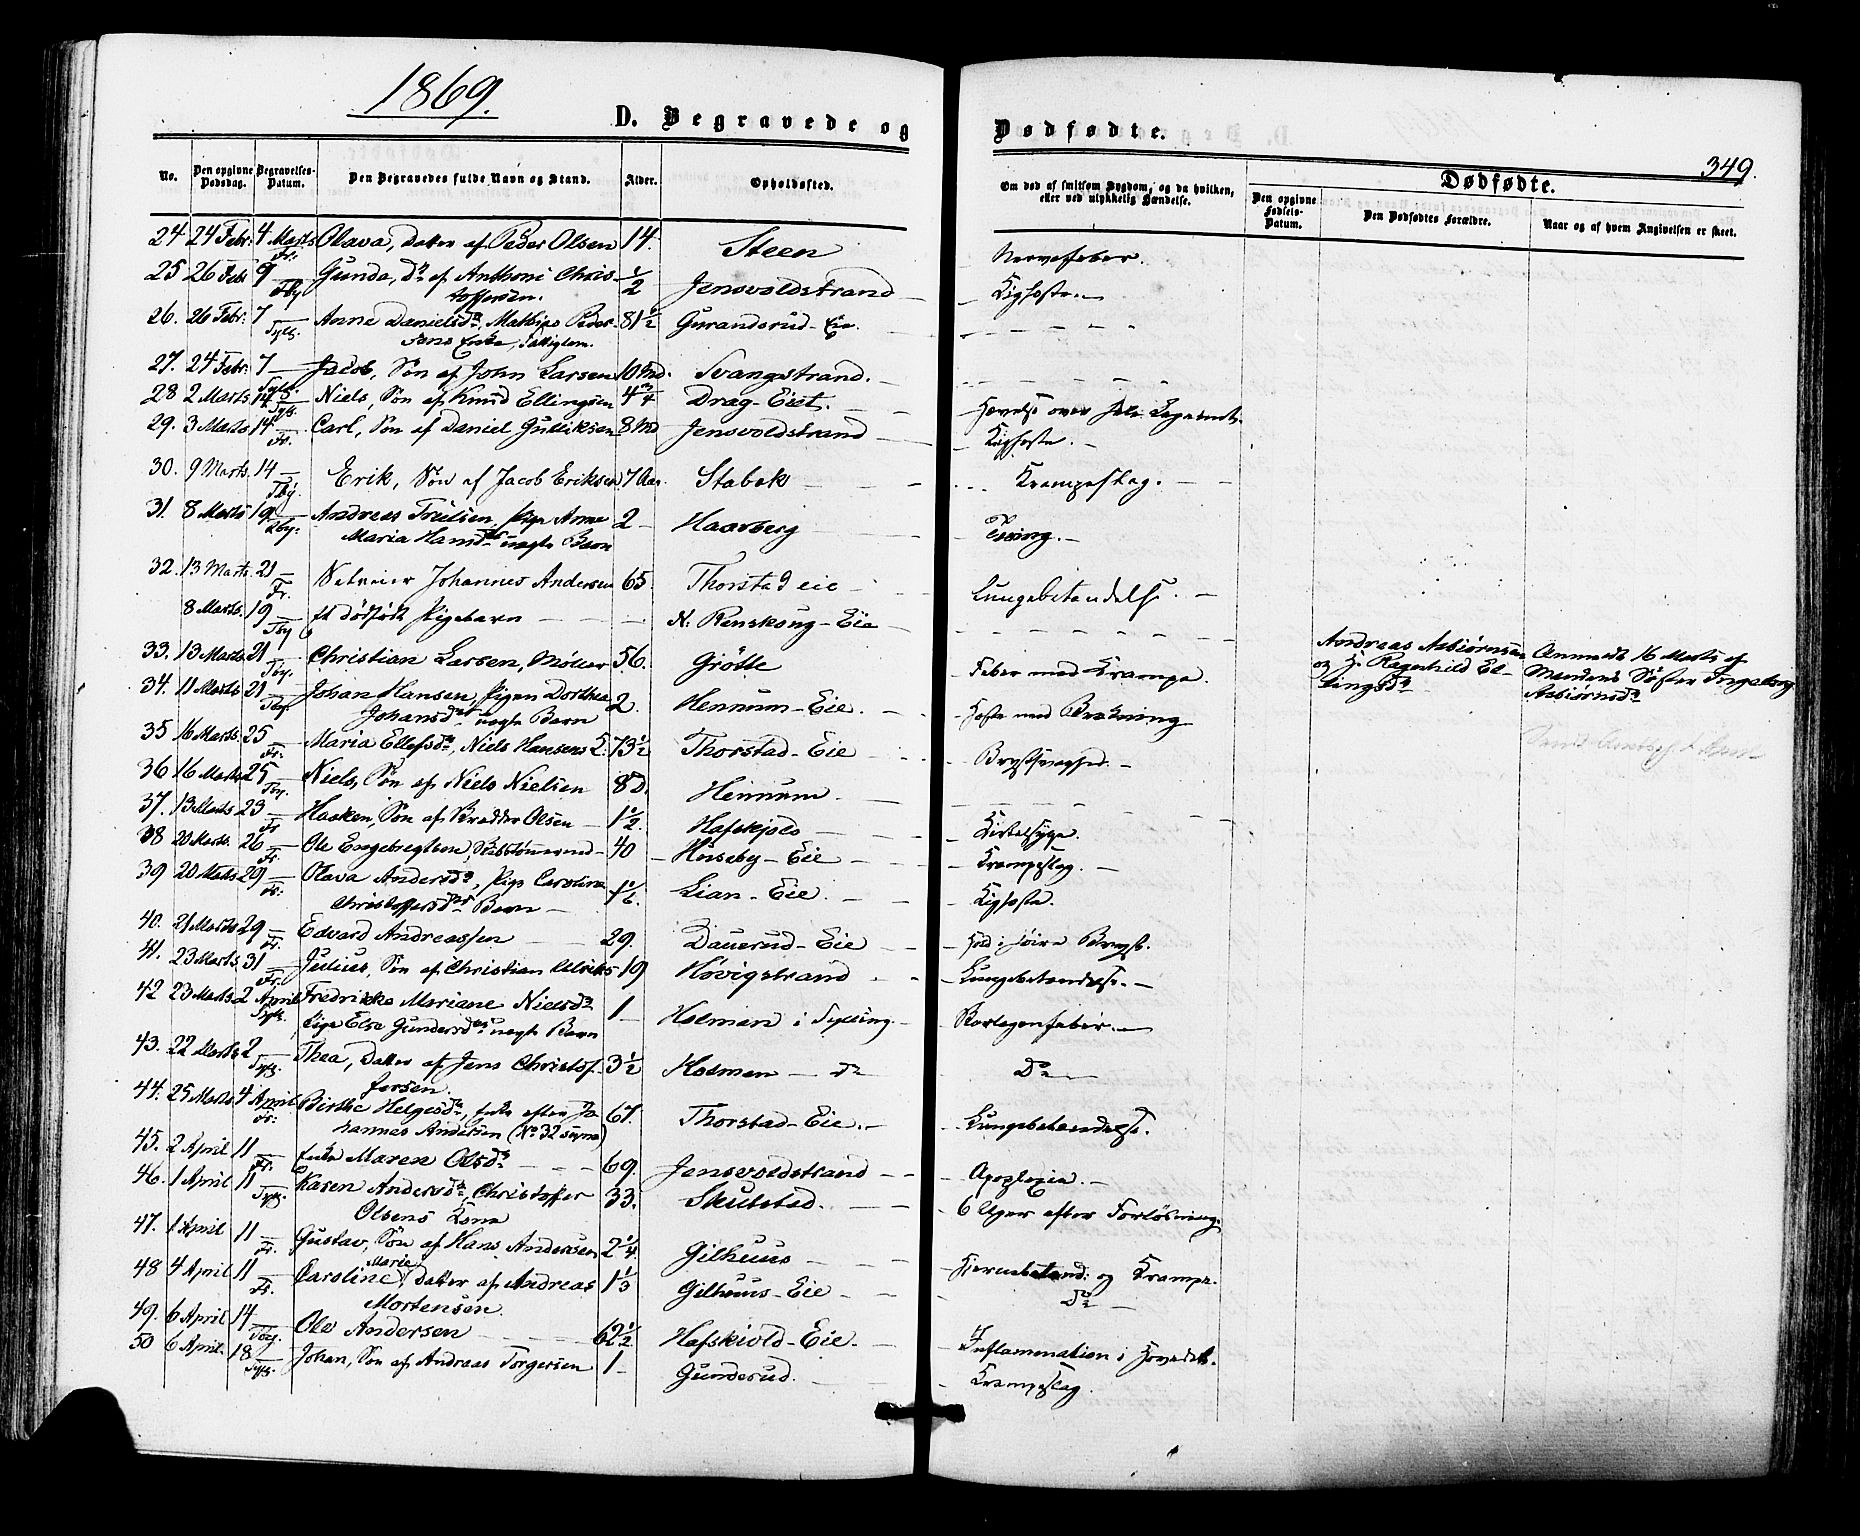 1869.
D. Begravede og Dødfødte.
349.
No. Den opgivne Dødsdag. Begravelses-Datum. Den Begravedes fulde Navn og Stand. Alder. Opholdssted. Om død af smitsom Sygdom, og da hvilken, eller ved ulykkelig Hændelse. Dødfødte.
Den opgivne Fødsels-Datum. Den Dødfødtes Forældre. Naar og af hvem Angivelsen er skeet.
24 24 Febr. 4 Marts Fr. Olava, Datter af Peder Olsen 14. Steen Nervefeber.
25 26 Febr 9 — Tby Gunda, Dr. af Anthoni Chris- 1/2 Jensvoldstrand Kighoste.
toffersen.
26. 26 Febr. 7 — Sylg. Anne Danielsdr, Mathias Peder- 81 1/2 Gunnderud-Eie.
sens Enke, Fattiglem.
27. 24 Febr. 7 — Jacob, Søn af John Larsen 10 Md. Svangstrand.
28 2 Marts 14 — Sylg. Niels, Søn af Knud Ellingsen 4 3/4 Drag-Eiet. Hævelse over hele Legemet.
29. 3 Marts 14 — Fr. Carl, Søn af Daniel Gulliksen 8 Md Jensvoldstrand Kighoste.
30. 9 Marts. 14 — Tby. Erik, Søn af Jacob Eriksen 7 Aar. Stabæk Krampeslag.
31. 8 Marts 19 — Tby. Andreas Trulsen, Pige Anne 2 — Haarberg Tæring.
Maria Hansdrs uægte Barn
32. 13 Marts. 21 — Fr. Selveier Johannes Andersen 65. Thorstad eie Lungebetændelse.
8 Marts. 19 — Tby et dødfødt Pigebarn N. Renskoug-Eie Andreas Asbiørnsen Anmeldt 16 Marts af
og H. Ragnhild El- Mandens Søster Ingeborg
lingsdr Asbiørnsdr
33. 13 Marts 21 — Tby. Christian Larsen, Møller 56. Grøtte Feber med Krampe.
34. 11 Marts 21 — Tby. Johan Hansen, Pigen Dorthea 2. Hennum-Eie. Hoste med Brækning
Johansdrs uægte Barn
35 16 Marts. 25 — Fr. Maria Ellefsdr, Niels Hansens E. 73 1/2 Thorstad-Eie Brystsvaghed.
36 16 Marts 25 — Tby. Niels, Søn af Niels Nielsen 8 D. Hennum.
37. 13 Marts 23 — Fr Haaken, Søn af Bredder Olsen 1 1/2. Hafskjold Kirtelsyge.
38 20 Marts. 26 — Fr. Ole Engebregtsen, 40 Hørseby-Eie Krampeslag.
39 20 Marts 29 — Fr. Olava Andersdr, Pige Caroline 1 1/6. Lian-Eie. Kighoste.
Christoffersdrs Barn
40. 21 Marts 29 — Fr. Edvard Andreassen 29. Dauerud-Eie Hold i høire Bryst.
41. 23 Marts. 31 — Fr. Julius, Søn af Christian Ulriks 19 Høvigstrand Lungebetændelse.
42 23 Marts 2 April Sylg. Fredrikke Mariane Nielsdr 1 — Holmen i Sylling. Barlagenfeber.
Pige Else Gundersdrs uægte Barn
43. 22 Marts 2 — Sylg. Thea, Datter af Jens Christof- 3 1/2 Holmen — do Do
fersen.
44. 25 Marts 4 April Fr. Birthe Helgesdr, Enke efter Jo- 67. Thorstad-Eie. Lungebetændelse.
hannes Andersen (No 32 supra)
45. 2 April 11 — Fr. Enke Maren Olsdr 69. Jensvoldstrand Apoplexia.
46. 1 April 11 — Sylg. Karen Andersdr, Christoffer 33. Skulstad. 6 Uger efter Forløsning.
Olsens Kone
47. 1 April 11 — Fr. Gustav, Søn af Hans Andersen 2 1/4. Gilhuus Hjernebetænd. og Krampe.
48 4 April 11 — Fr. Caroline Marie, Datter af Andreas 1 1/3 Gilhuus-Eie Do
Mortensen.
49. 6 April 14 — Tby. Ole Andersen 62 1/2 Hafskiold-Eie. Inflammation i Hovedet.
50 6 April. 18 — Sylg. Johan, Søn af Andreas Torgersen 1 — Gunderud. Krampeslag.